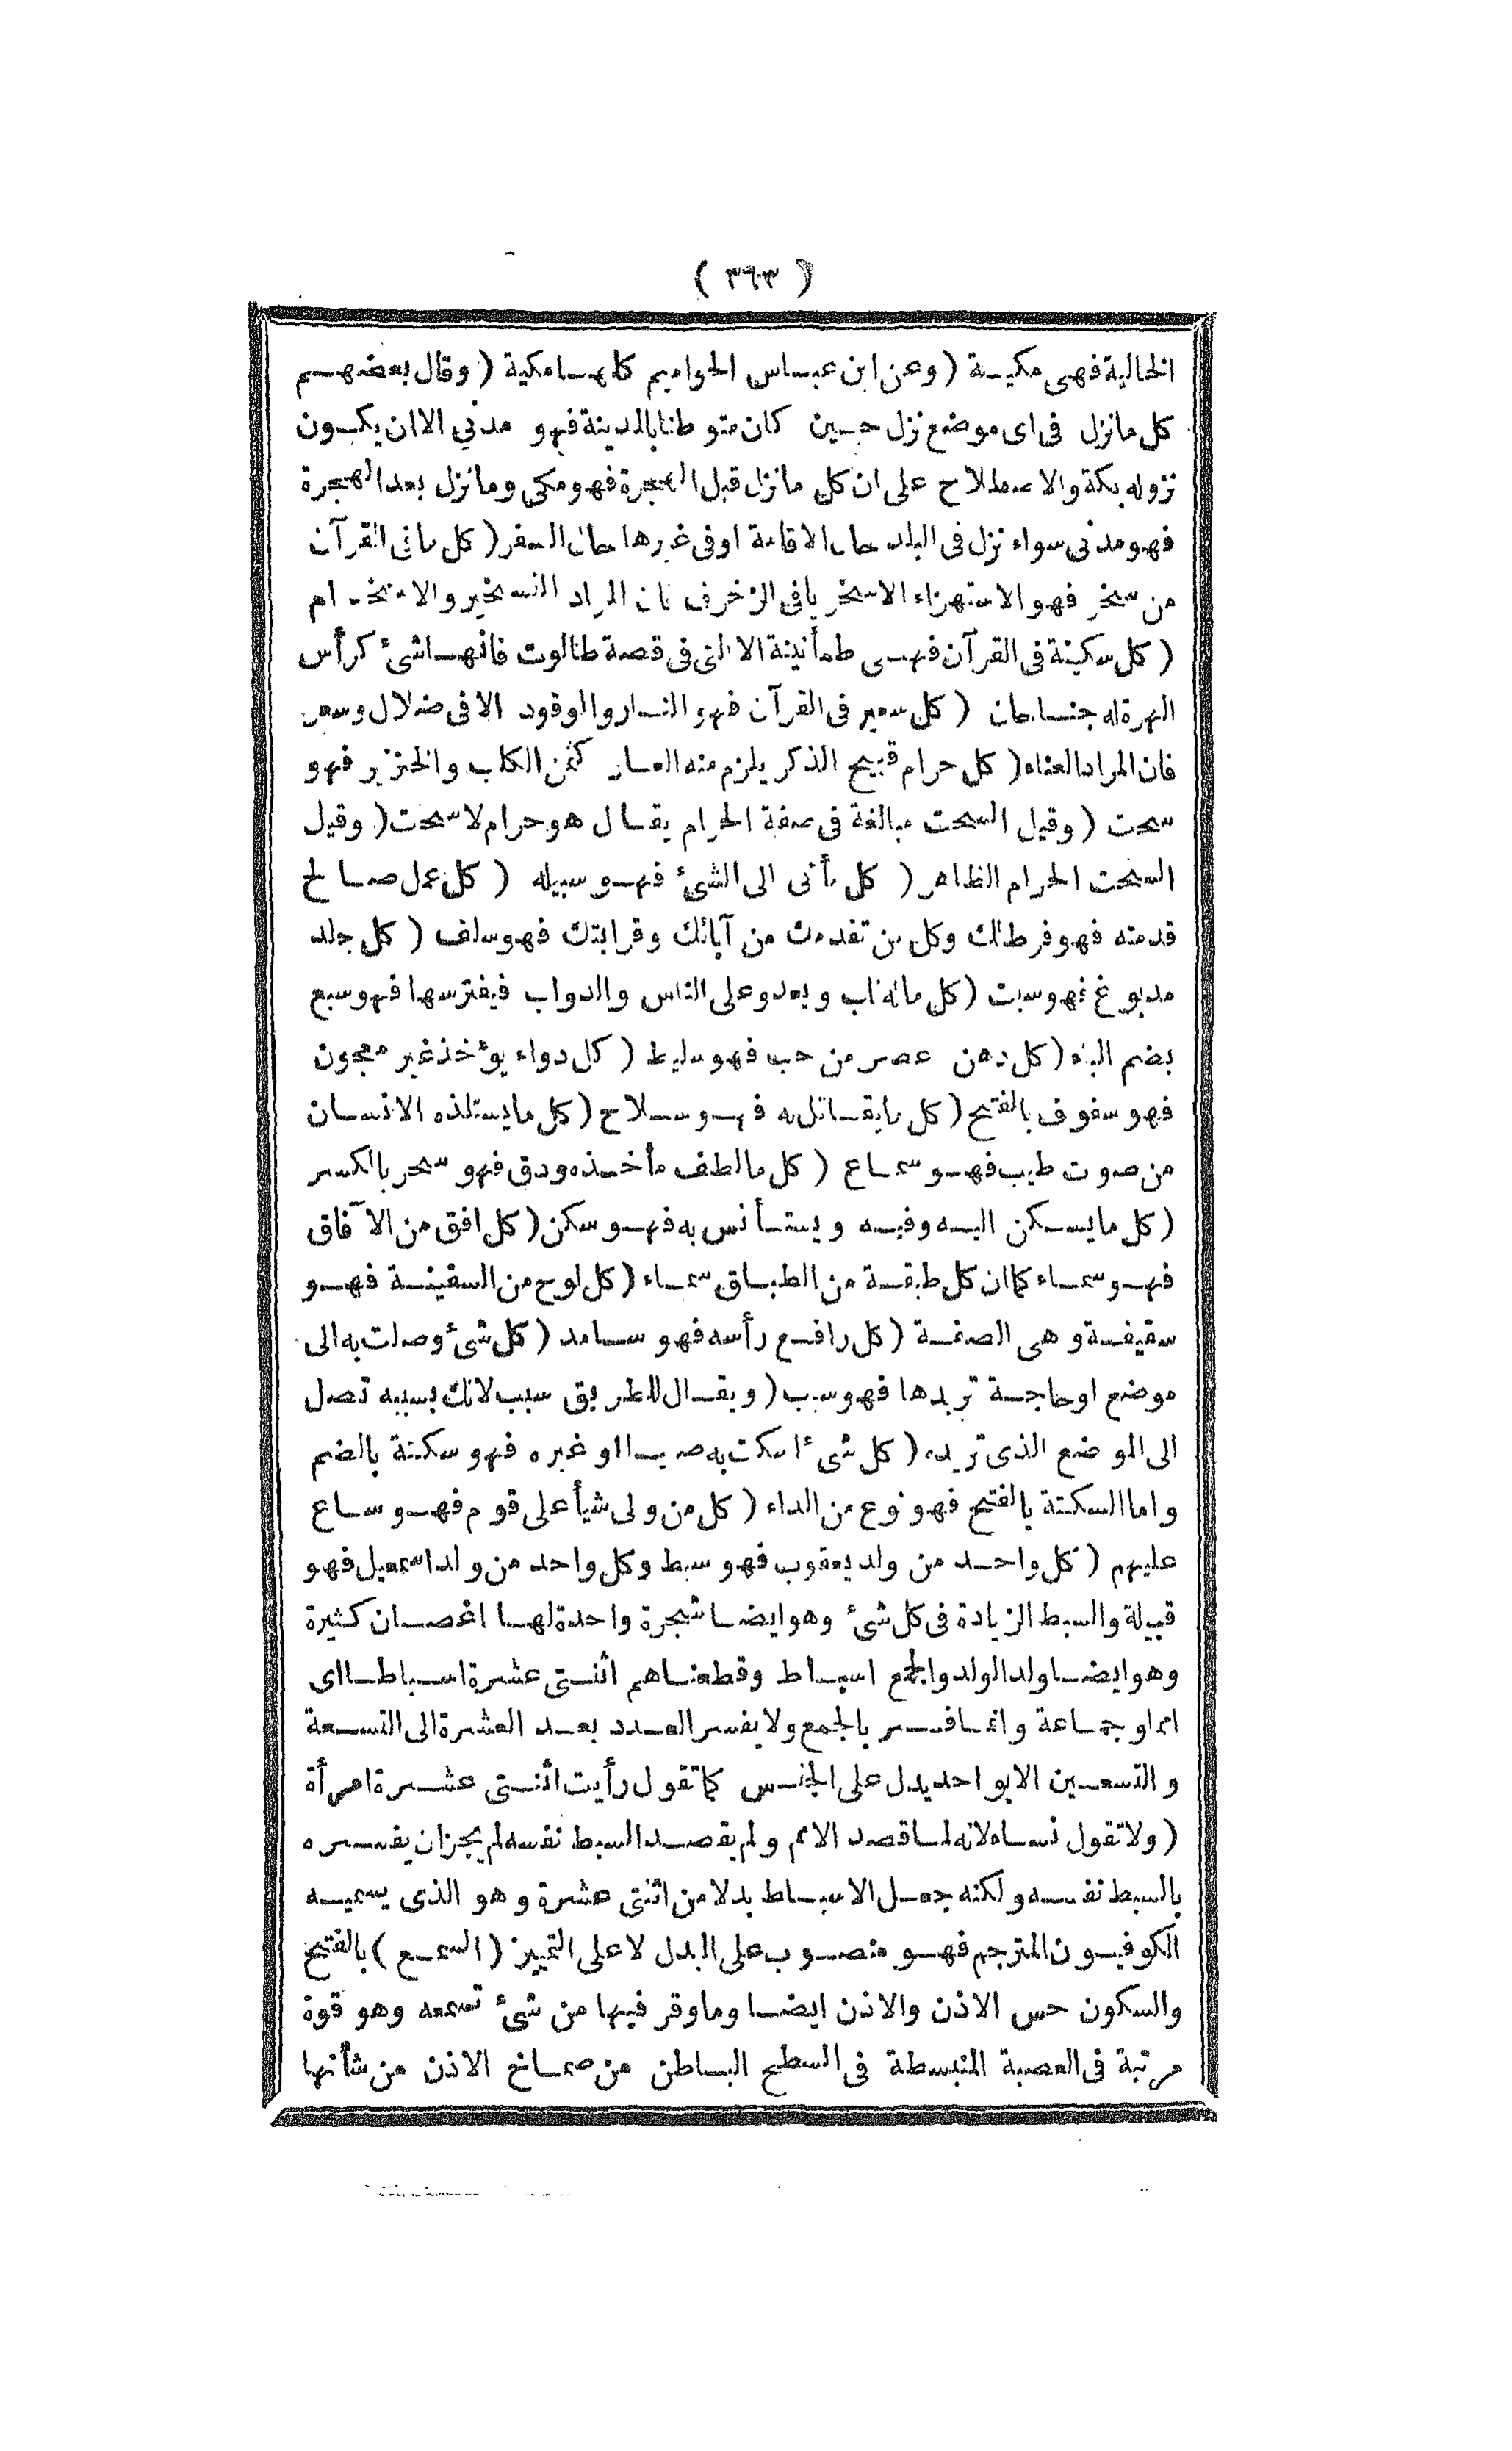 ( ٣٦٣ )
الخالية فهى مكية ( وعن ابن عباس الحواميم كلها مكية ( وقال بعضهم
كل مانزل فى اى موضع نزل حين كان متوطنا بالمدينة فهو مدنى الا ان يكون
نزوله بمكة والاصطلاح على ان كل مانزل قبل الهجرة فهو مكى ومانزل بعد الهجرة
فهو مدنى سواء نزل فى البلد حال الاقامة او فى غيرها حال السفر ( كل مافى القرآن
من سخر فهو الاستهزاء الا سخريا فى الزخرف فان المراد التسخير والاستخدام
( كل سكينة فى القرآن فهى طمأنينة الا التى فى قصة طالوت فانها شئ كرأس
الهرة له جناحان ( كل سعير فى القرآن فهو النار والوقود الا فى ضلال وسعر
فان المراد العناء ( كل حرام قبيح الذكر يلزم منه العار كثمن الكلب والخنزير فهو
سحت ( وقيل السحت مبالغة فى صفة الحرام يقال هو حرام لا سحت ( وقيل
السحت الحرام الظاهر ( كل مأتى الى الشئ فهو سبيله ( كل عمل صالح
قدمته فهو فرط لك وكل من تقدمك من آبائك وقرابتك فهو سلف ( كل جلد
مدبوغ فهو سبت ( كل ماله ناب ويعدو على الناس والدواب فيفترسها فهو سبع
بضم الباء ( كل دهن عصر من حب فهو سليط ( كل دواء يؤخذ غير معجون
فهو سفوف بالفتح ( كل مايقاتل به فهو سلاح ( كل مايستلذه الانسان
من صوت طيب فهو سماع ( كل مالطف مأخذه ودق فهو سحر بالكسر
( كل مايسكن اليه وفيه ويستأنس به فهو سكن ( كل افق من الآفاق
فهو سماء كما ان كل طبقة من الطباق سماء ( كل لوح من السفينة فهو
سقيفة وهى الصفة ( كل رافع رأسه فهو سامد ( كل شئ وصلت به الى
موضع او حاجة تريدها فهو سبب ( ويقال للطريق سبب لانك بسببه تصل
الى الموضع الذى تريده ( كل شئ اسكت به صبيا او غيره فهو سكتة بالضم
واما السكتة بالفتح فهو نوع من الداء ( كل من ولى شيأ على قوم فهو ساع
عليهم ( كل واحد من ولد يعقوب فهو سبط وكل واحد من ولد اسمعيل فهو
قبيلة والسبط الزيادة فى كل شئ وهو ايضا شجرة واحدة لها اغصان كثيرة
وهو ايضا ولد الولد والجمع اسباط وقطعناهم اثنتى عشرة اسباطا اى
امما وجماعة وانما فسر بالجمع ولا يفسر العدد بعد العشرة الى التسعة
والتسعين الا بواحد يدل على الجنس كما تقول رأيت اثنتى عشرة امرأة
( ولا تقول نساء لانه لما قصد الامم ولم يقصد السبط نفسه لم يجز ان يفسره
بالسبط نفسه ولكنه جعل الاسباط بدلا من اثنتى عشرة وهو الذى يسميه
الكوفيون المترجم فهو منصوب على البدل لا على التمييز ( السمع ) بالفتح
والسكون حس الاذن والاذن ايضا وما وقر فيها من شئ تسمعه وهو قوة
مرتبة فى العصبة المنبسطة فى السطح الباطن من صماخ الاذن من شأنها